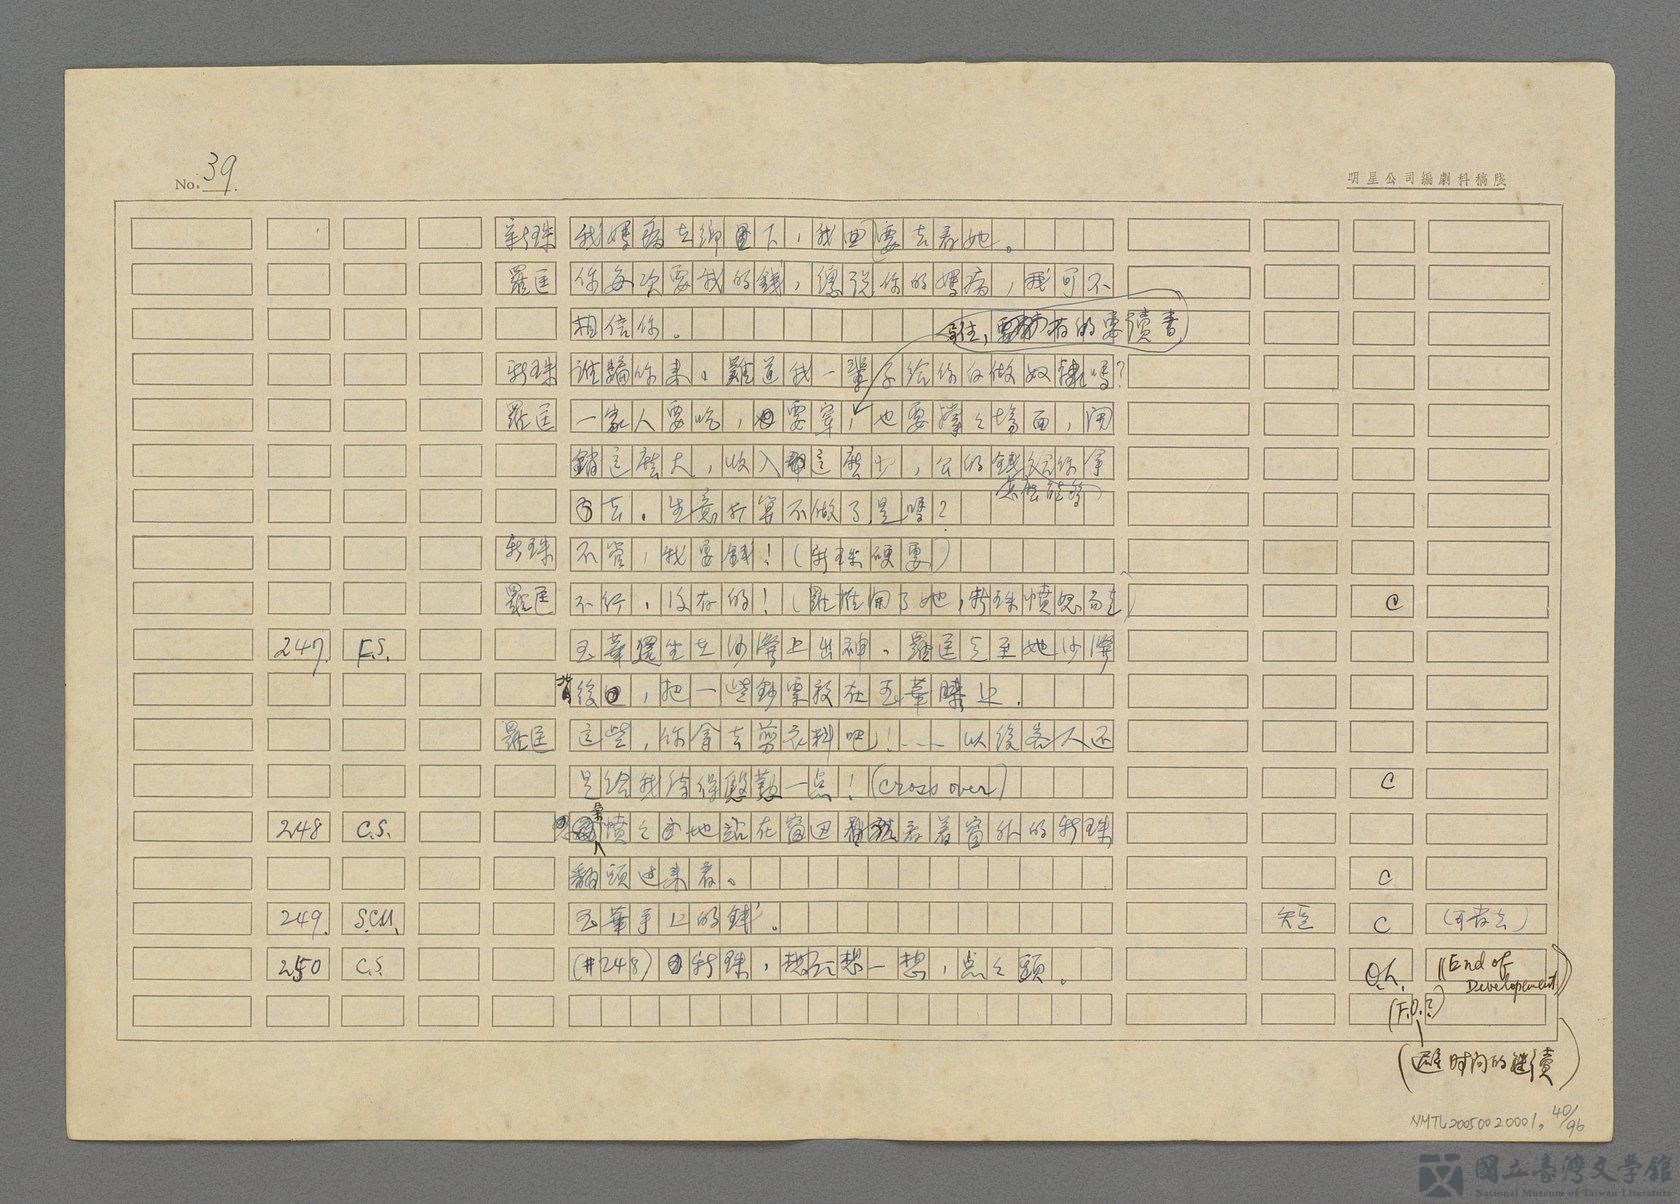 No. 39.
明星公司編劇科稿牋
新珠 我媽病在鄉下，我要去看她。
羅匡 你每次要我的錢，總說你的媽病，我可不
相信你。
住，有的要讀書
新珠 誰騙你來。難道我一輩子給你們做奴隸嗎？
羅匡 一家人要吃，要穿，也要撐撐場面，開
銷這麼大，收入這麼少，公的錢給你拿
怎麼能夠
去。生意打算不做了是嗎？
新珠 不管，我要錢！（新珠硬要）
羅匡 不行，沒有的！（羅推開了她，新珠憤怒而走） C
247. F.S. 玉華還坐在沙灣上出神。羅匡走至她沙灣
背後，把一些鈔票放在玉華膝上。
羅匡 這些，你拿去剪衣料吧！…… 以後客人还
是給我待得慇懃一点！（Cross over） C
248 C.S. 憤憤地站在窗边看着窗外的新珠
翻頭过来看。 C
249. S.CU. 玉華手上的錢。 短 C （可省去）
250 C.S. （#248）新珠，想一想，点点頭。 O.L. （（End of
Developement））
（F.O.?）
（時间的継續）
NMTL20050020001, 40/96
國立臺灣文學館
National Museum of Taiwan Literature